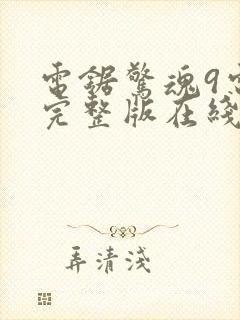 電鋸驚魂9電
完整版在綫
弄清淺